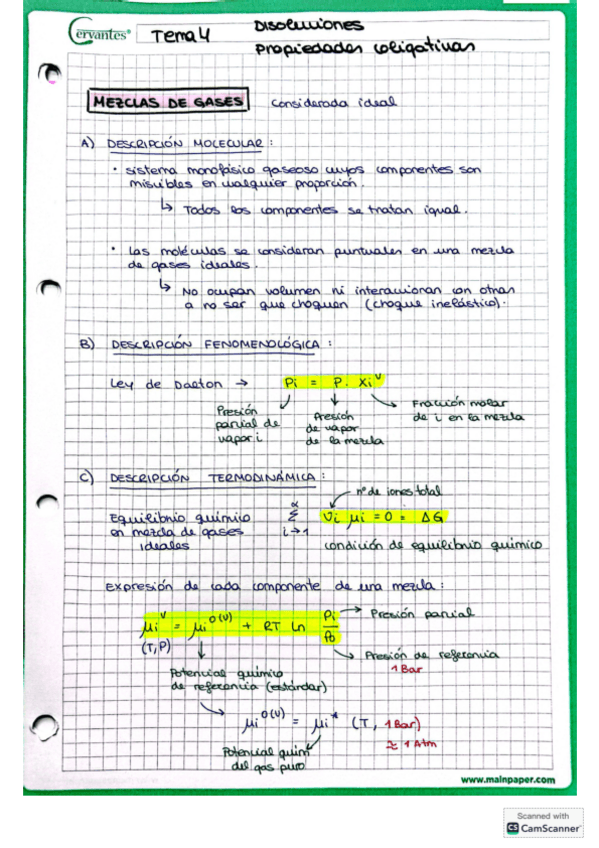 Cervantes® Tema 4 Disoluciones
Propiedades coligativas
MEZCLAS DE GASES Considerada ideal
A) DESCRIPCIÓN MOLECULAR:
· Sistema monofásico gaseoso cuyos componentes son
miscibles en cualquier proporción.
↳ Todos los componentes se tratan igual.
· Las moléculas se consideran puntuales en una mezcla
de gases ideales.
↳ No ocupan volumen ni interaccionan con otras
a no ser que choquen (choque inelástico).
B) DESCRIPCIÓN FENOMENOLÓGICA:
Ley de Dalton → Pi = P · Xi^v
Presión
parcial de
vapor i
Presión
de vapor
de la mezcla
Fracción molar
de i en la mezcla
C) DESCRIPCIÓN TERMODINÁMICA:
nº de iones total
Equilibrio químico
en mezcla de gases
ideales
α Σ i→1 νi μi = 0 = ΔG
condición de equilibrio químico
Expresión de cada componente de una mezcla:
μi^v = μi^0(v) + RT Ln Pi/P0 → Presión parcial
(T,P)
→ Presión de referencia
1 Bar
Potencial químico
de referencia (estándar)
μi^0(v) = μi* (T, 1 Bar)
≈ 1 Atm
Potencial quim
del gas puro
www.mainpaper.com
Scanned with
CS CamScanner